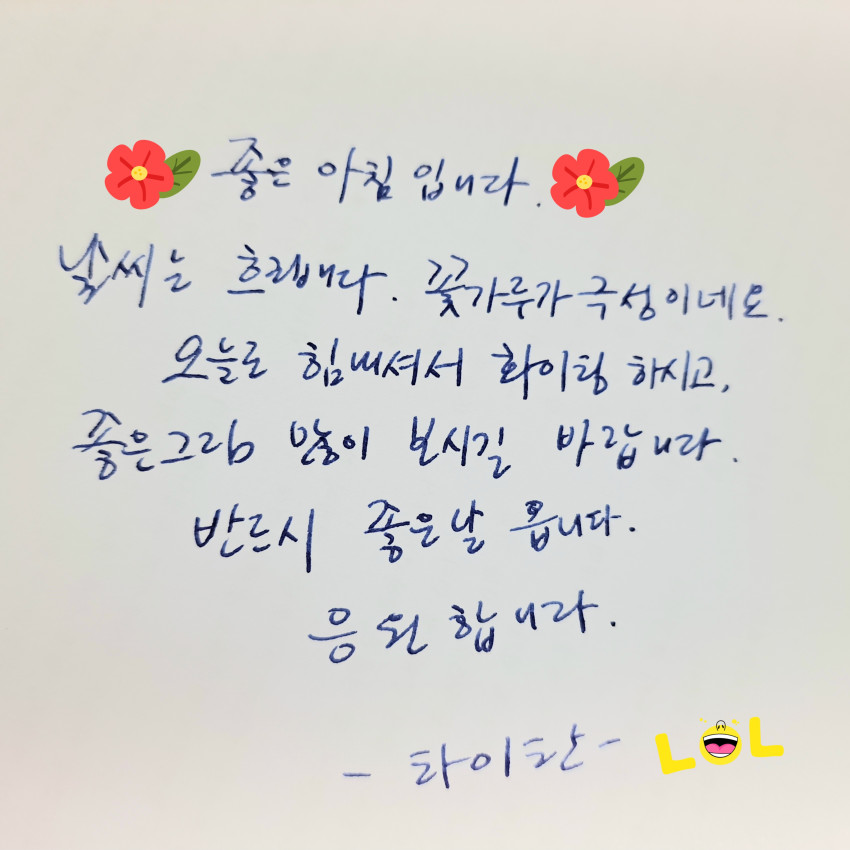 좋은 아침 입니다.
날씨는 흐립니다. 꽃가루가 극성이네요.
오늘도 힘내셔서 화이팅 하시고,
좋은그림 많이 보시길 바랍니다.
반드시 좋은날 옵니다.
응원합니다.
- 타이탄 -
LOL